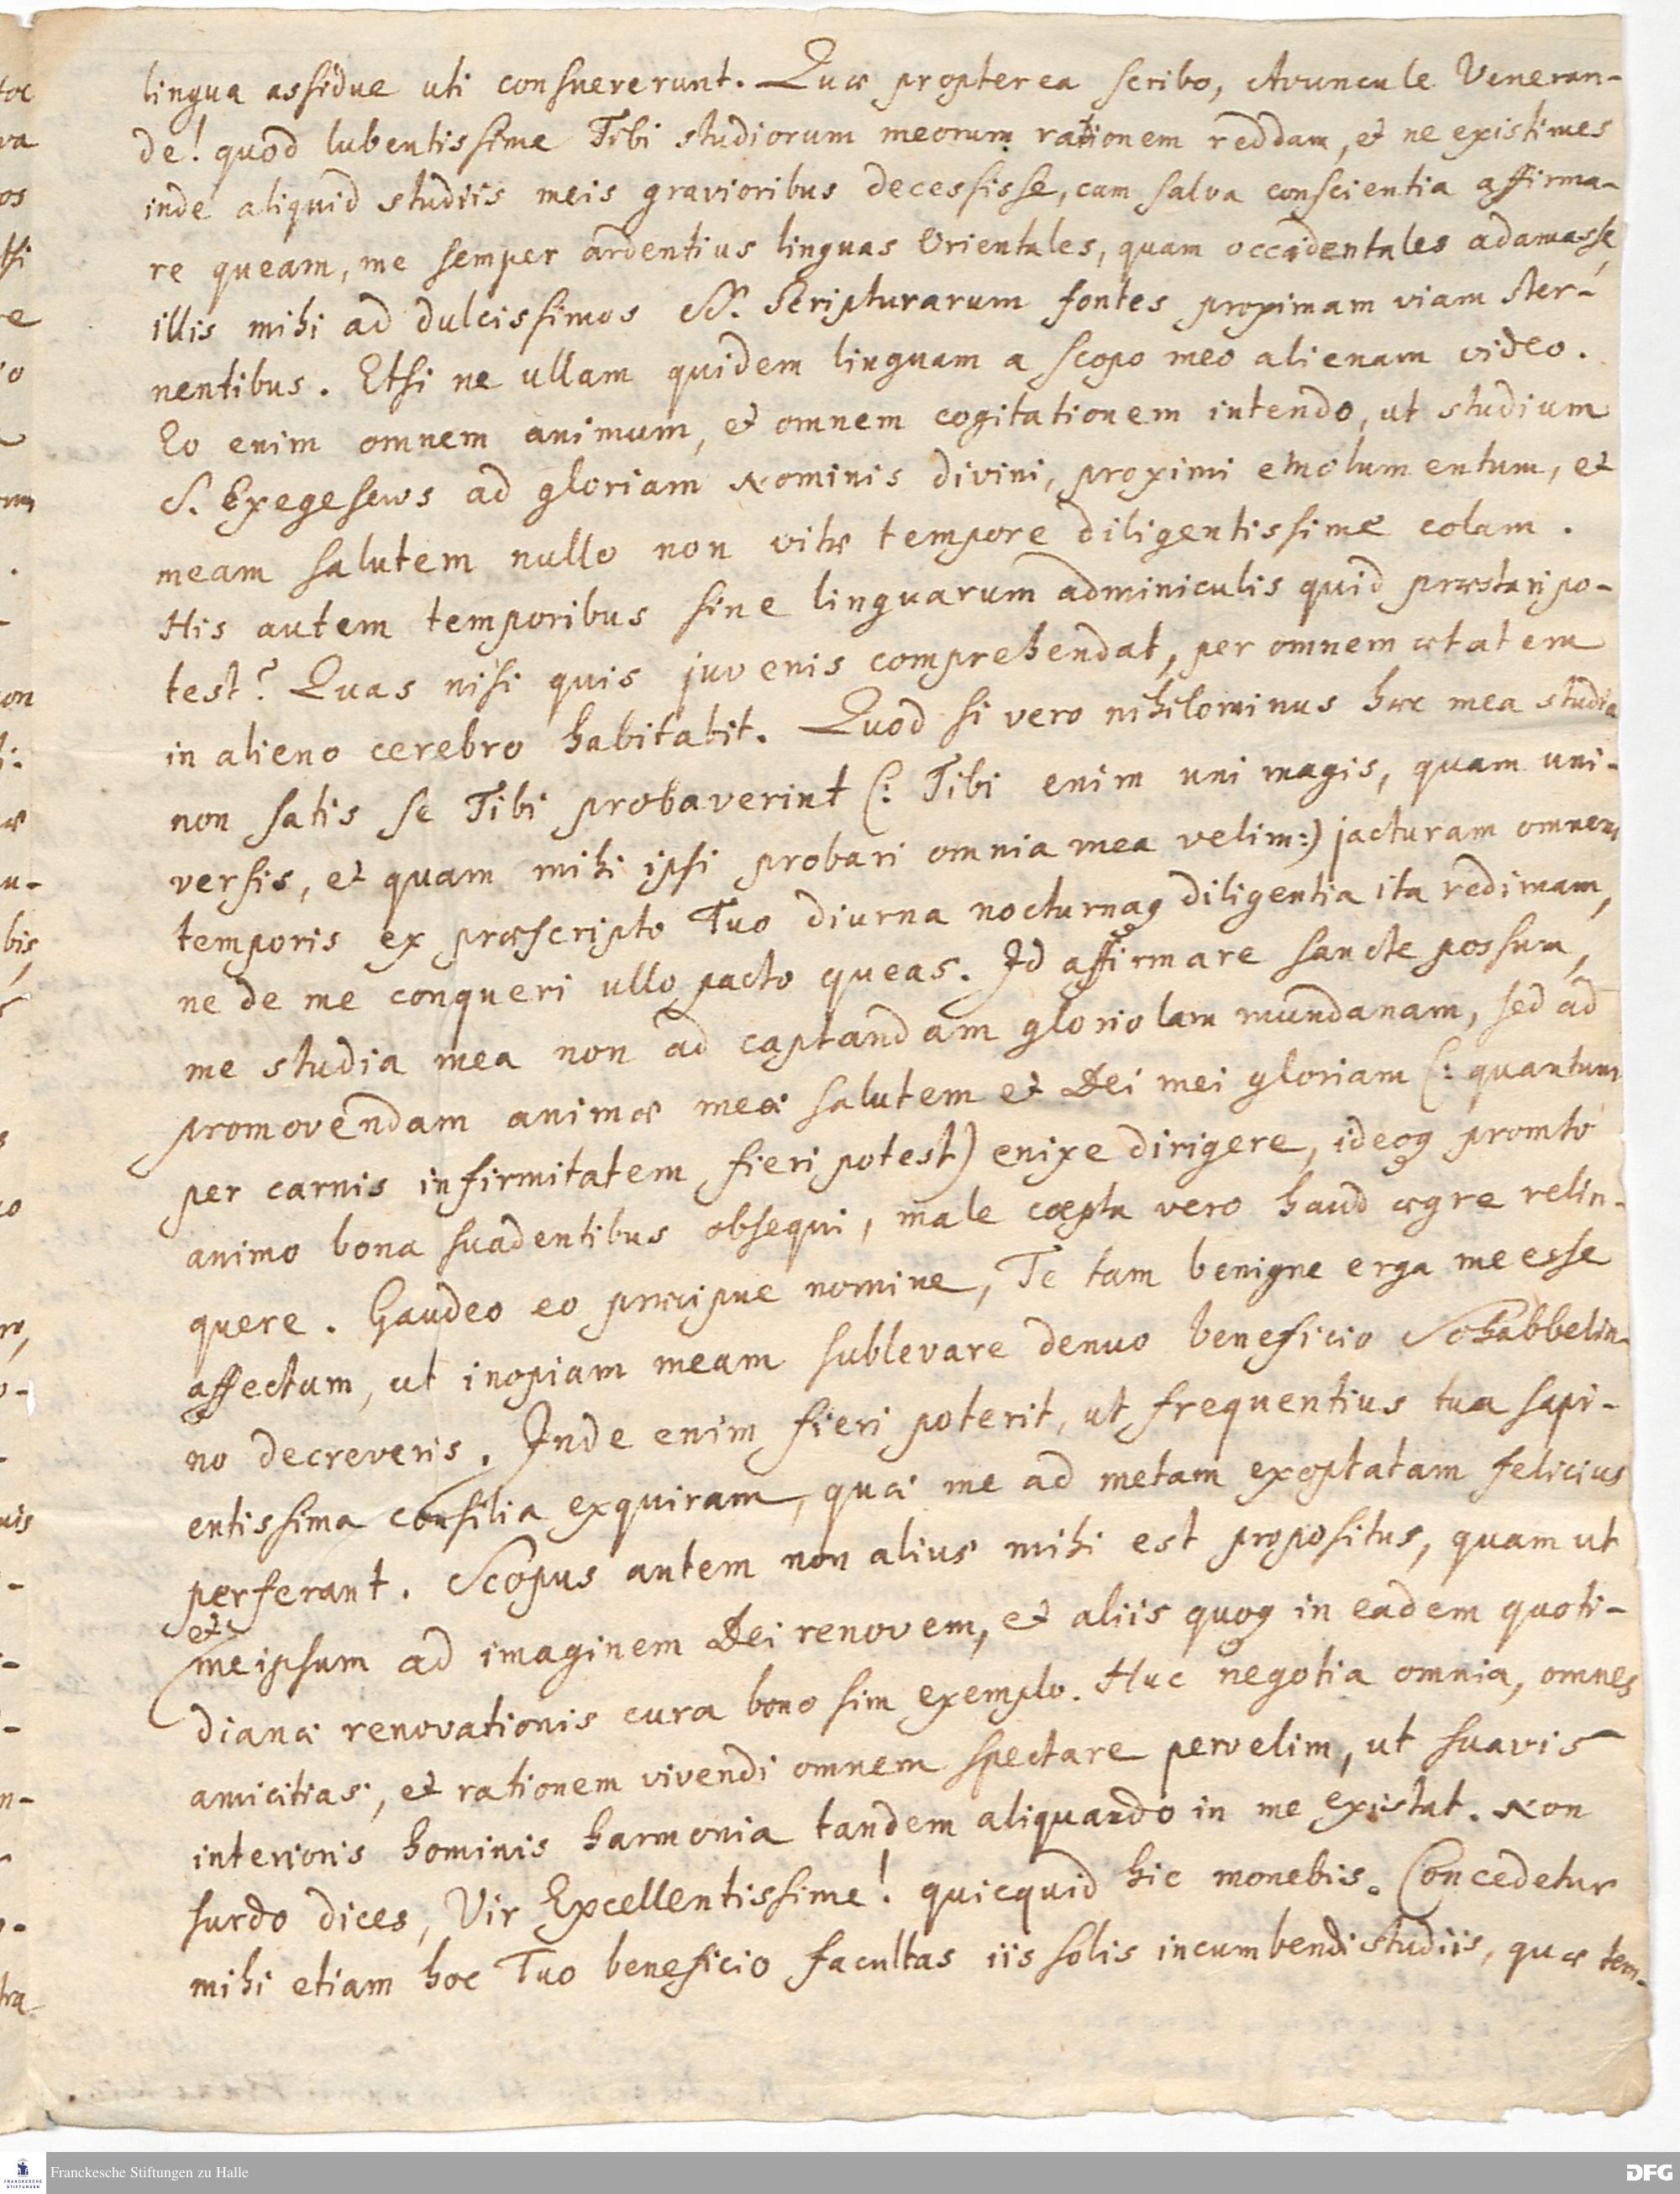 lingua assidue uti consuererunt. Quæ propterea scribo, Avuncule Veneran-
de! quod lubentissime Tibi studiorum meorum rationem reddam, et ne existimes
inde aliquid studiis meis gravioribus decessisse, cum salva conscientia affirma-
re queam, me semper ardentius linguas Orientales, quam occidentales adamasse,
illis mihi ad dulcissimos SS. Scripturarum fontes proximam viam ster-
nentibus. Etsi ne ullam quidem linguam a scopo meo alienam video.
Eo enim omnem animum, et omnem cogitationem intendo, ut studium
S. Exegeseωs ad gloriam Nominis divini, proximi emolumentum, et
meam salutem nullo non vitæ tempore diligentissime colam.
His autem temporibus sine linguarum adminiculis quid præstari po-
test? Quas nisi quis juvenis comprehendat, per omnem ætatem
in alieno cerebro habitabit. Quod si vero nihilominus hæc mea studia
non satis se Tibi probaverint (: Tibi enim uni magis, quam uni-
versis, et quam mihi ipsi probari omnia mea velim:) jacturam omnem
temporis ex præscripto Tuo diurna nocturnaq diligentia ita redimam,
ne de me conqueri ullo pacto queas. Id affirmare sancte possum,
me studia mea non ad captandam gloriolam mundanam, sed ad
promovendam animæ meæ salutem et Dei mei gloriam (: quantum
per carnis infirmitatem fieri potest) enixe dirigere, ideoq promto
animo bona suadentibus obsequi, male cœpta vero haud ægre relin-
quere. Gaudeo eo præcipue nomine, Te tam benigne erga me esse
affectum, ut inopiam meam sublevare denuo beneficio Schabbelin-
no decreveris. Inde enim fieri poterit, ut frequentius tua sapi-
entissima consilia exquiram, quæ me ad metam exoptatam felicius
perferant. Scopus autem non alius mihi est propositus, quam ut
et
meipsum ad imaginem Dei renovem, et aliis quoq in eadem quoti-
dianæ renovationis cura bono sim exemplo. Huc negotia omnia, omnes
amicitias, et rationem vivendi omnem spectare pervelim, ut suavis
interioris hominis harmonia tandem aliquando in me existat. Non
surdo dices, Vir Excellentissime! quicquid hic monebis. Concedetur
mihi etiam hoc Tuo beneficio facultas iis solis incumbendi studiis, quæ tem-
Franckesche Stiftungen zu Halle
DFG